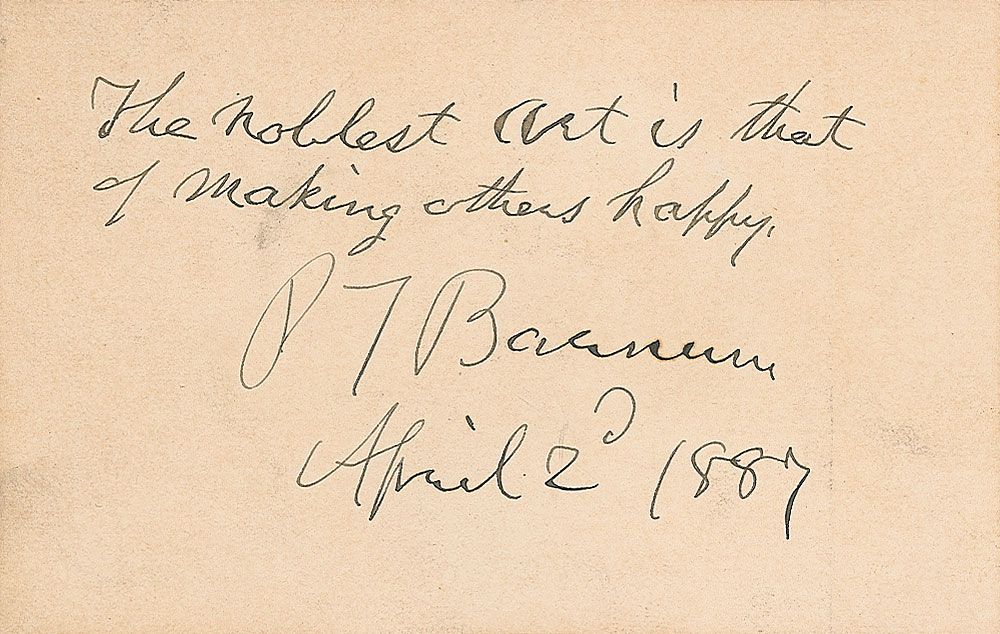 The noblest art is that
of making others happy.
P T Barnum
April 2d 1887